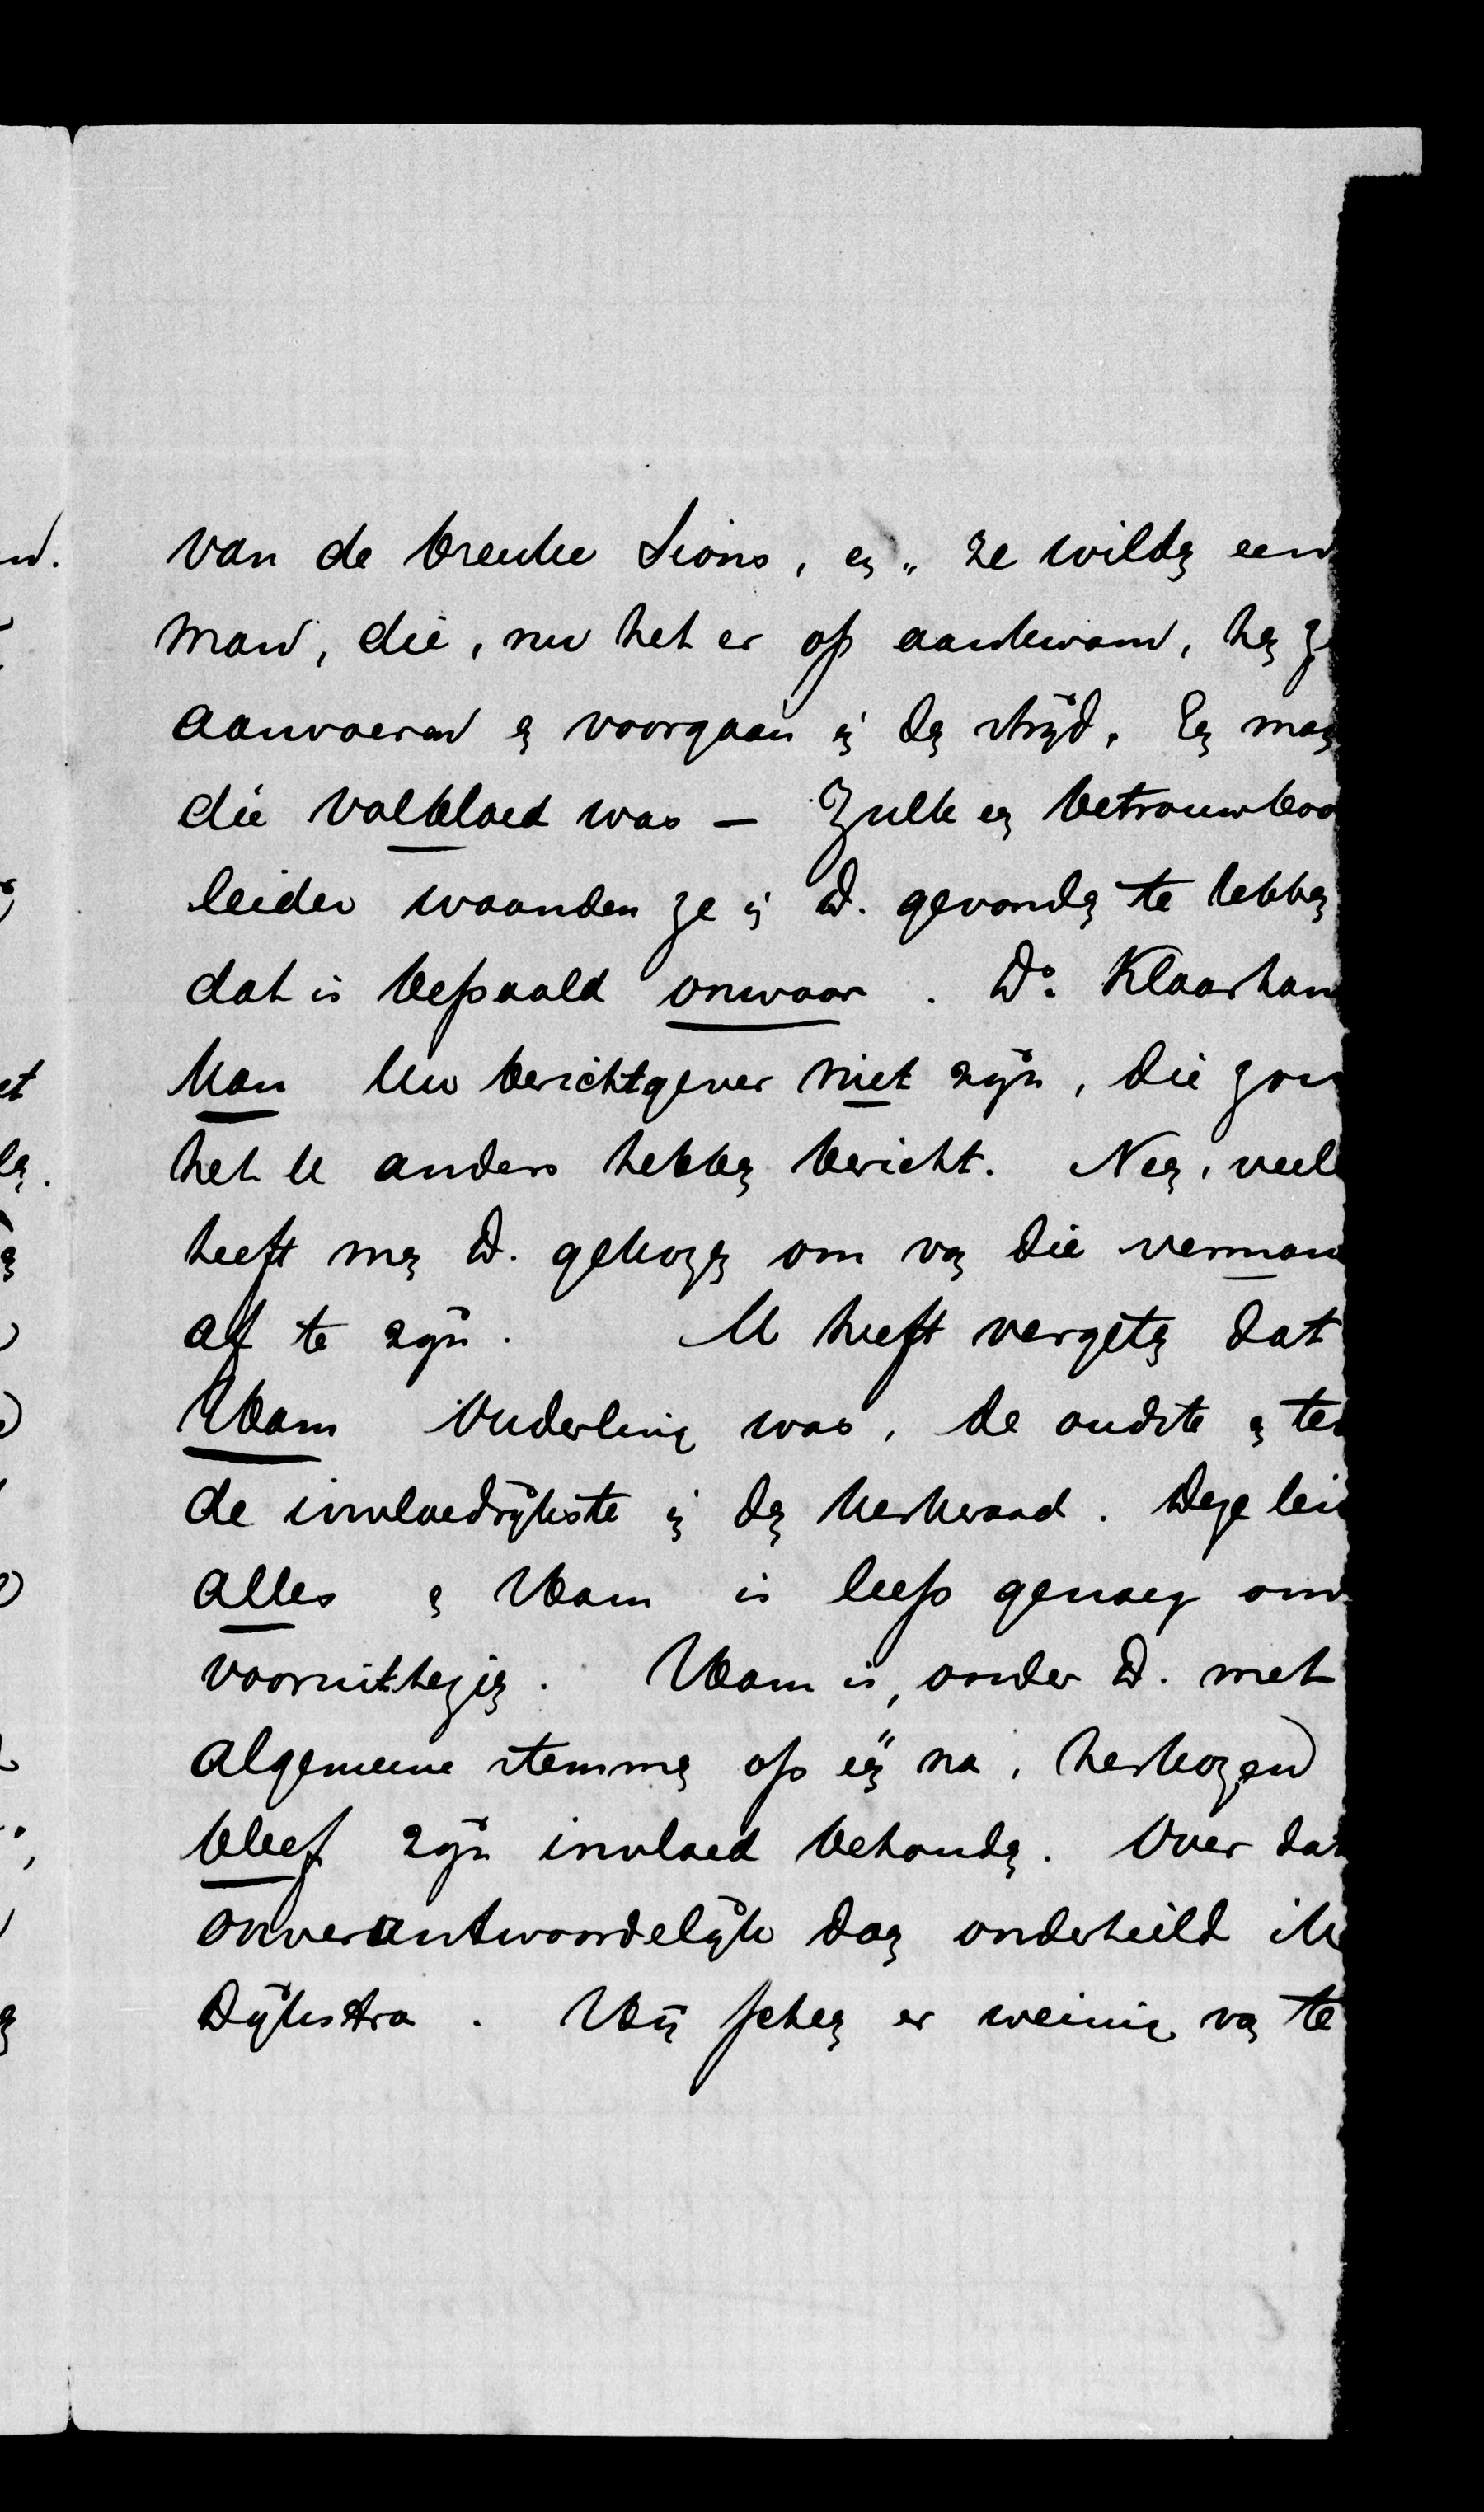 van de breuke Sions, en „ ze wilden een
man, die, nu het er op aankwam, hen
aanvoeren en voorgaan in den strijd. Een man
die volbloed was — Zulk een betrouwbaa
leider waanden ze in D. gevonden te hebben
dat is bepaald onwaar. Ds. Klaarham
kan Uw berichtgever niet zijn, die zou
het U anders hebben bericht. Neen, veele
heeft men D. gekozen om van die verman
af te zijn. U heeft vergeten dat
Wam Ouderling was, de oudste en
de invloedrijkste in den kerkeraad. Deze
alles en Wam is leep genoeg om
vooruittezien. Wam is, onder D. met
algemeene stemmen op één na, herkozen
bleef zijn invloed behouden. Over dat
onverantwoordelijk doen onderhield ik
Dijkstra. Hij scheen er weinig van te